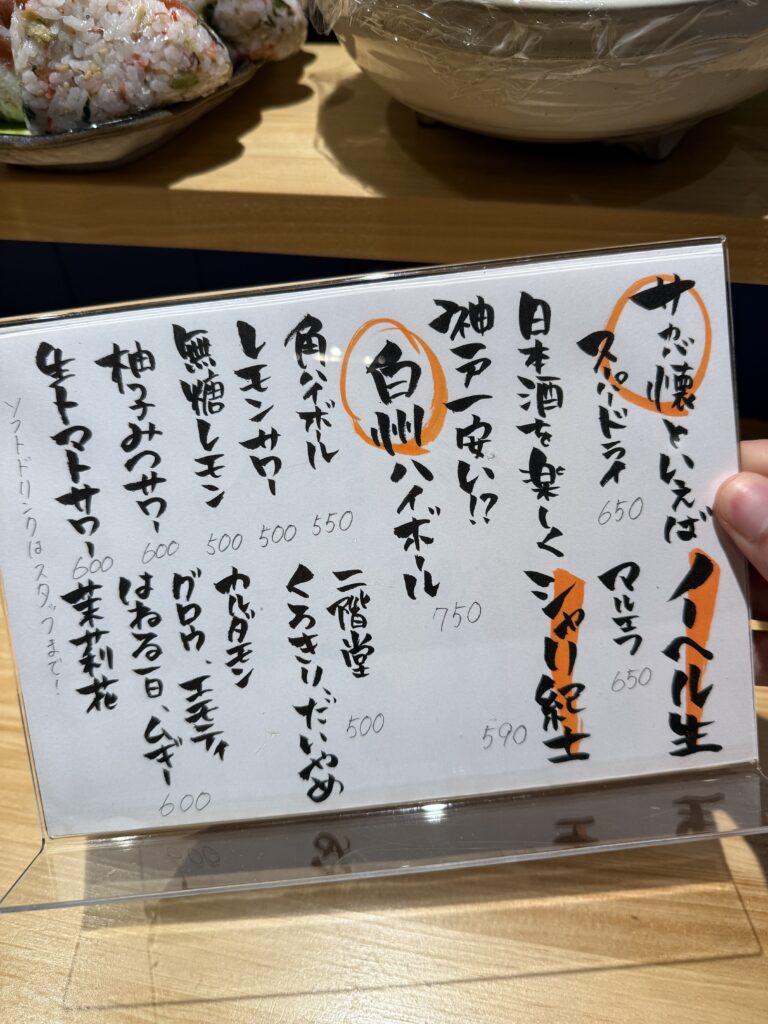 サが懐といえば ノーベル生
スーパードライ
650
マルエフ
650
日本酒を楽しく シャリ紀土
590
神戸一安い!?
白州ハイボール
750
角ハイボール
550
レモンサワー
500
無糖レモン
500
柚子みつサワー
600
生トマトサワー
600
二階堂
くろきり、だいやめ
500
カルダモン
グロウ、エモティ
はねる一日、ムギー
600
茉莉花
ソフトドリンクはスタッフまで!